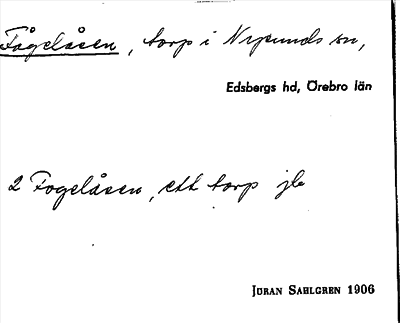 Fågelåsen, torp i Nysunds sn,
Edsbergs hd, Örebro län
2 Fogelåsen, ett torp jb
JÖRAN SAHLGREN 1906